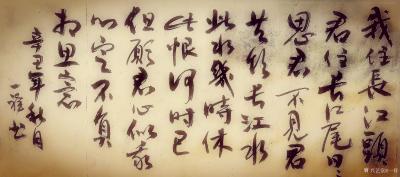 我住長江頭
君住长江尾日日
思君不見君
共饮长江水
此水幾時休
此恨何时已
但願君心似我
心定不負
相思意
辛丑年秋月
一程书